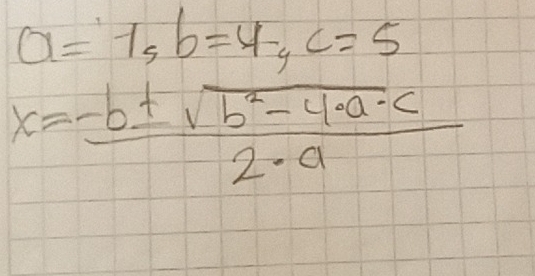 a = 1, b = 4, c = 5
x = -b ± √b² - 4·a·c
2·a